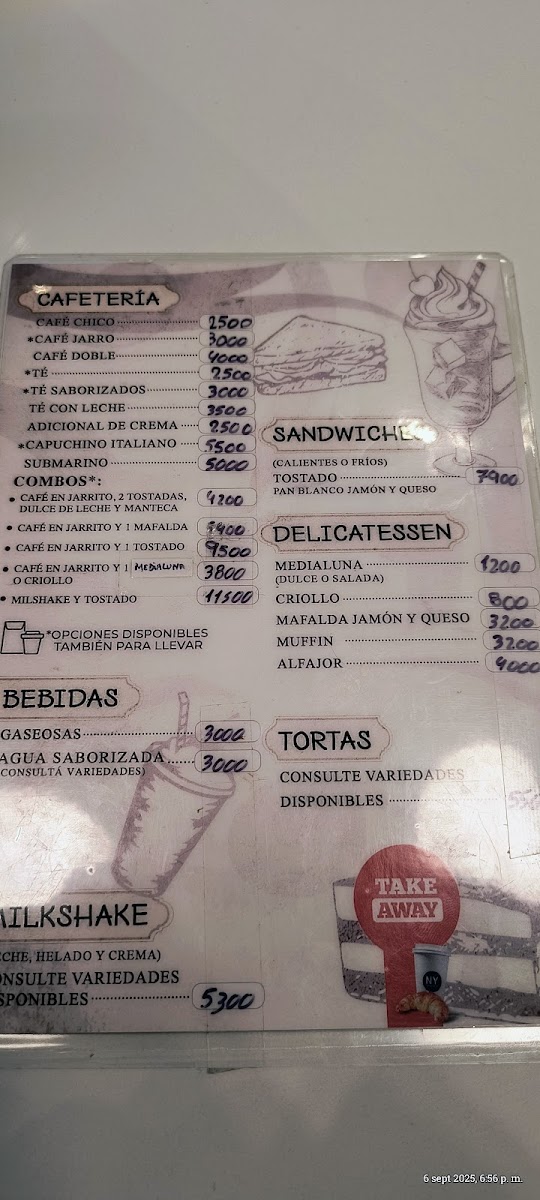 CAFETERÍA
CAFÉ CHICO 2500
*CAFÉ JARRO 3000
CAFÉ DOBLE 4000
*TÉ 2500
*TÉ SABORIZADOS 3000
TÉ CON LECHE 3500
ADICIONAL DE CREMA 2500
*CAPUCHINO ITALIANO 5500
SUBMARINO 5000
COMBOS*:
• CAFÉ EN JARRITO, 2 TOSTADAS, 4200
DULCE DE LECHE Y MANTECA
• CAFÉ EN JARRITO Y 1 MAFALDA
• CAFÉ EN JARRITO Y 1 TOSTADO 9500
• CAFÉ EN JARRITO Y 1 MEDIALUNA 3800
O CRIOLLO
• MILSHAKE Y TOSTADO 11500
*OPCIONES DISPONIBLES
TAMBIÉN PARA LLEVAR
BEBIDAS
GASEOSAS 3000
AGUA SABORIZADA 3000
(CONSULTÁ VARIEDADES)
MILKSHAKE
CHE, HELADO Y CREMA)
ONSULTE VARIEDADES
SPONIBLES 5300
SANDWICHE
(CALIENTES O FRÍOS)
TOSTADO 7900
PAN BLANCO JAMÓN Y QUESO
DELICATESSEN
MEDIALUNA 1200
(DULCE O SALADA)
CRIOLLO 800
MAFALDA JAMÓN Y QUESO 3200
MUFFIN 3200
ALFAJOR 4000
TORTAS
CONSULTE VARIEDADES
DISPONIBLES
TAKE
AWAY
NY
6 sept 2025, 6:56 p. m.